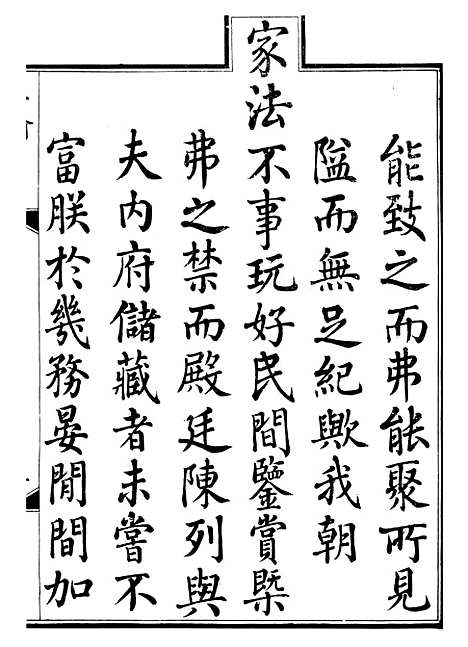 能致之而弗能聚所見
隘而無足紀歟我朝
家法不事玩好民間鑒賞槩
弗之禁而殿廷陳列與
夫內府儲藏者未嘗不
富朕於幾務晏閒間加